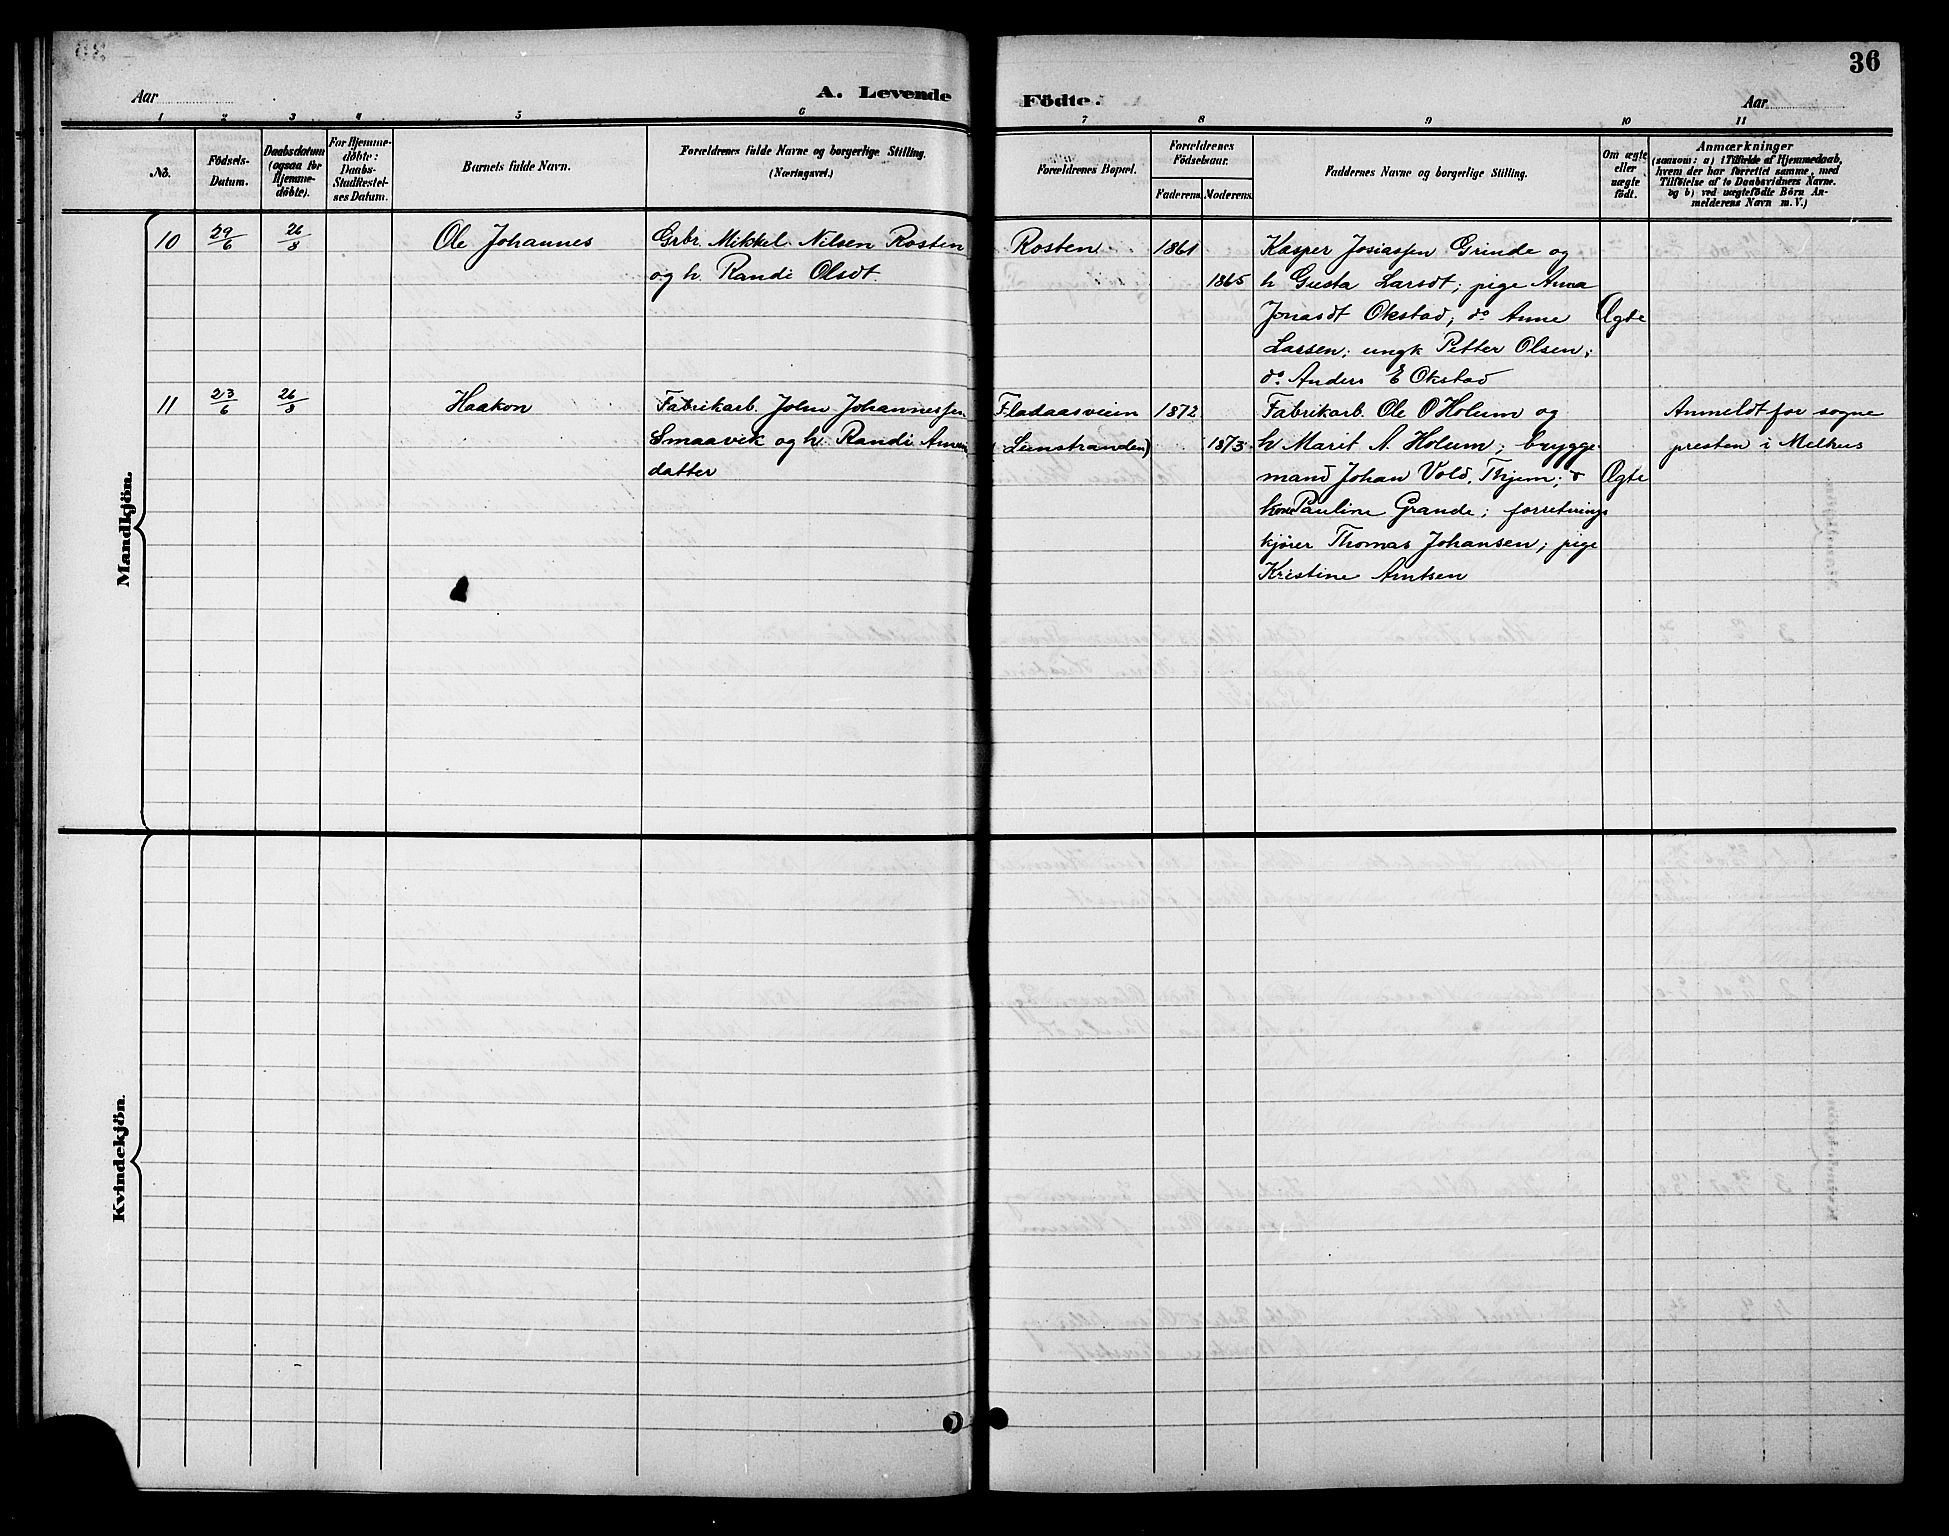 36
Aar
A. Levende
Födte.
Aar
1 2 3 4 5 6 7 8 9 10 11
No.
Födsels-
Datum.
Daabsdatum
(ogsaa for
Hjemme-
döbte).
For Hjemme-
döbte:
Daabs-
Stadfestel-
ses Datum.
Barnets fulde Navn.
Forældrenes fulde Navne og borgerlige Stilling.
(Næringsvei.)
Forældrenes Bopæl.
Forældrenes
Födselsaar.
Faderens. Moderens.
Faddernes Navne og borgerlige Stilling.
Om ægte
eller
uægte
födt.
Anmærkninger
(saasom: a) i Tilfælde af Hjemmedaab,
hvem der har forrettet samme, med
Tilföielse af to Daabsvidners Navne.
og b) ved uægtefödte Börn An-
melderens Navn m. V.)
Mandkjön.
10 29/6 26/8 Ole Johannes Grbr. Mikkel Nilsen Rosten Rosten 1861 Kasper Josiassen Grinde og
og h. Randi Olsdt. 1865 h Gusta Larsdt; pige Anna
Jonasdt Okstad; do Anne Ægte
Larsen; ungk Petter Olsen;
do Anders E Okstad
11 23/6 26/8 Haakon Fabrikarb. John Johannessen Fladaasveien 1872 Fabrikarb. Ole O Holum og Anmeldt for sogne
Smaavik og h. Randi (Leinstranden) 1873 h Marit N. Holum; brygge- presten i Melhus
datter mand Johan Vold, Thjem; Ægte
kone Pauline Grande; forretnings
kjører Thomas Johansen; pige
Kristine Arntsen
Kvindekjön.